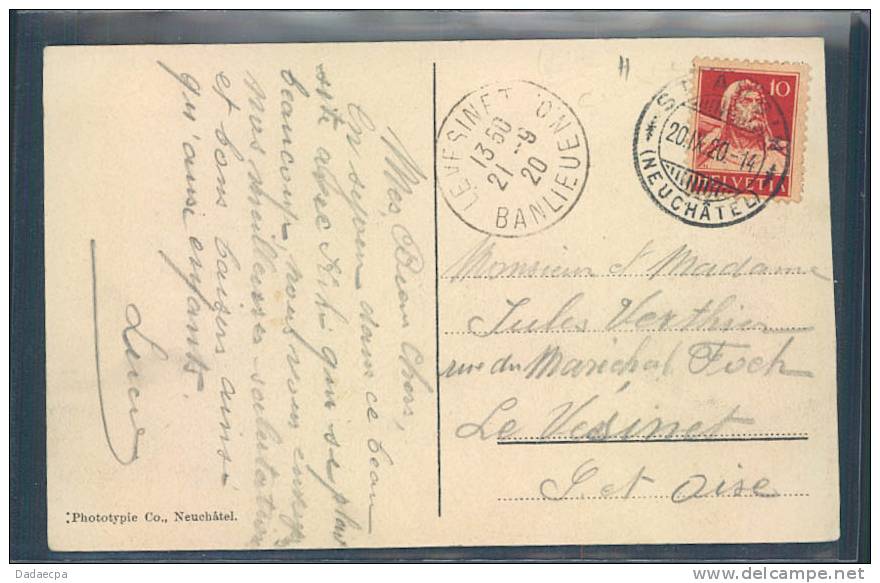 Mes Biens Chers,
En séjour dans ce beau
site avec Kiki qui se plait
beaucoup, nous vous envoyons
nos meilleures salutations
et bons baisers ainsi
qu'aux enfants.
Lucie
Phototypie Co., Neuchâtel.
LE VESINET
13 50
21 - 9
20
BANLIEUE NO.
10
HELVETIA
20.IX.20.-14
(NEUCHÂTEL)
Monsieur et Madame
Jules Verthier
rue du Maréchal Foch
Le Vésinet
S. et Oise
Dadaecpa
www.delcampe.net